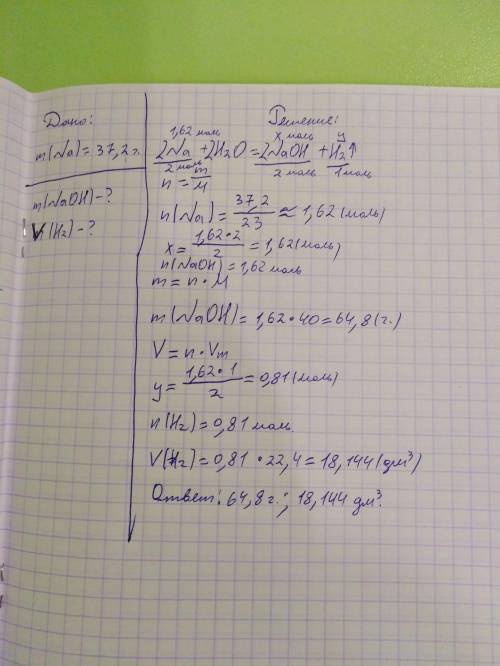 Дано:
m(Na) = 37,2 г.
m(NaOH) - ?
V(H₂) - ?
Решение:
1,62 моль x моль y
2Na + 2H₂O = 2NaOH + H₂↑
2 моль 2 моль 1 моль
n = m/M
n(Na) = 37,2/23 ≈ 1,62 (моль)
x = 1,62 • 2/2 = 1,62 (моль)
n(NaOH) = 1,62 моль
m = n • M
m(NaOH) = 1,62 • 40 = 64,8 (г.)
V = n • Vm
y = 1,62 • 1/2 = 0,81 (моль)
n(H₂) = 0,81 моль.
V(H₂) = 0,81 • 22,4 = 18,144 (дм³)
Ответ: 64,8 г.; 18,144 дм³.